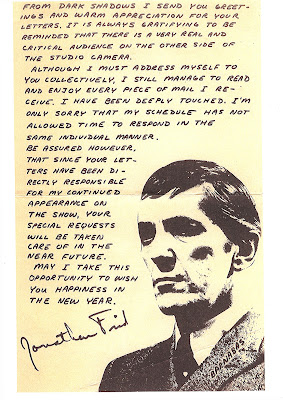 FROM DARK SHADOWS I SEND YOU GREET-
INGS AND WARM APPRECIATION FOR YOUR
LETTERS. IT IS ALWAYS GRATIFYING TO BE
REMINDED THAT THERE IS A VERY REAL AND
CRITICAL AUDIENCE ON THE OTHER SIDE OF
THE STUDIO CAMERA.
ALTHOUGH I MUST ADDRESS MYSELF TO
YOU COLLECTIVELY, I STILL MANAGE TO READ
AND ENJOY EVERY PIECE OF MAIL I RE-
CEIVE. I HAVE BEEN DEEPLY TOUCHED. I'M
ONLY SORRY THAT MY SCHEDULE HAS NOT
ALLOWED TIME TO RESPOND IN THE
SAME INDIVIDUAL MANNER.
BE ASSURED HOWEVER,
THAT SINCE YOUR LET-
TERS HAVE BEEN DI-
RECTLY RESPONSIBLE
FOR MY CONTINUED
APPEARANCE ON
THE SHOW, YOUR
SPECIAL REQUESTS
WILL BE TAKEN
CARE OF IN THE
NEAR FUTURE.
MAY I TAKE THIS
OPPORTUNITY TO WISH
YOU HAPPINESS IN
THE NEW YEAR.
Jonathan Frid
BARNABAS